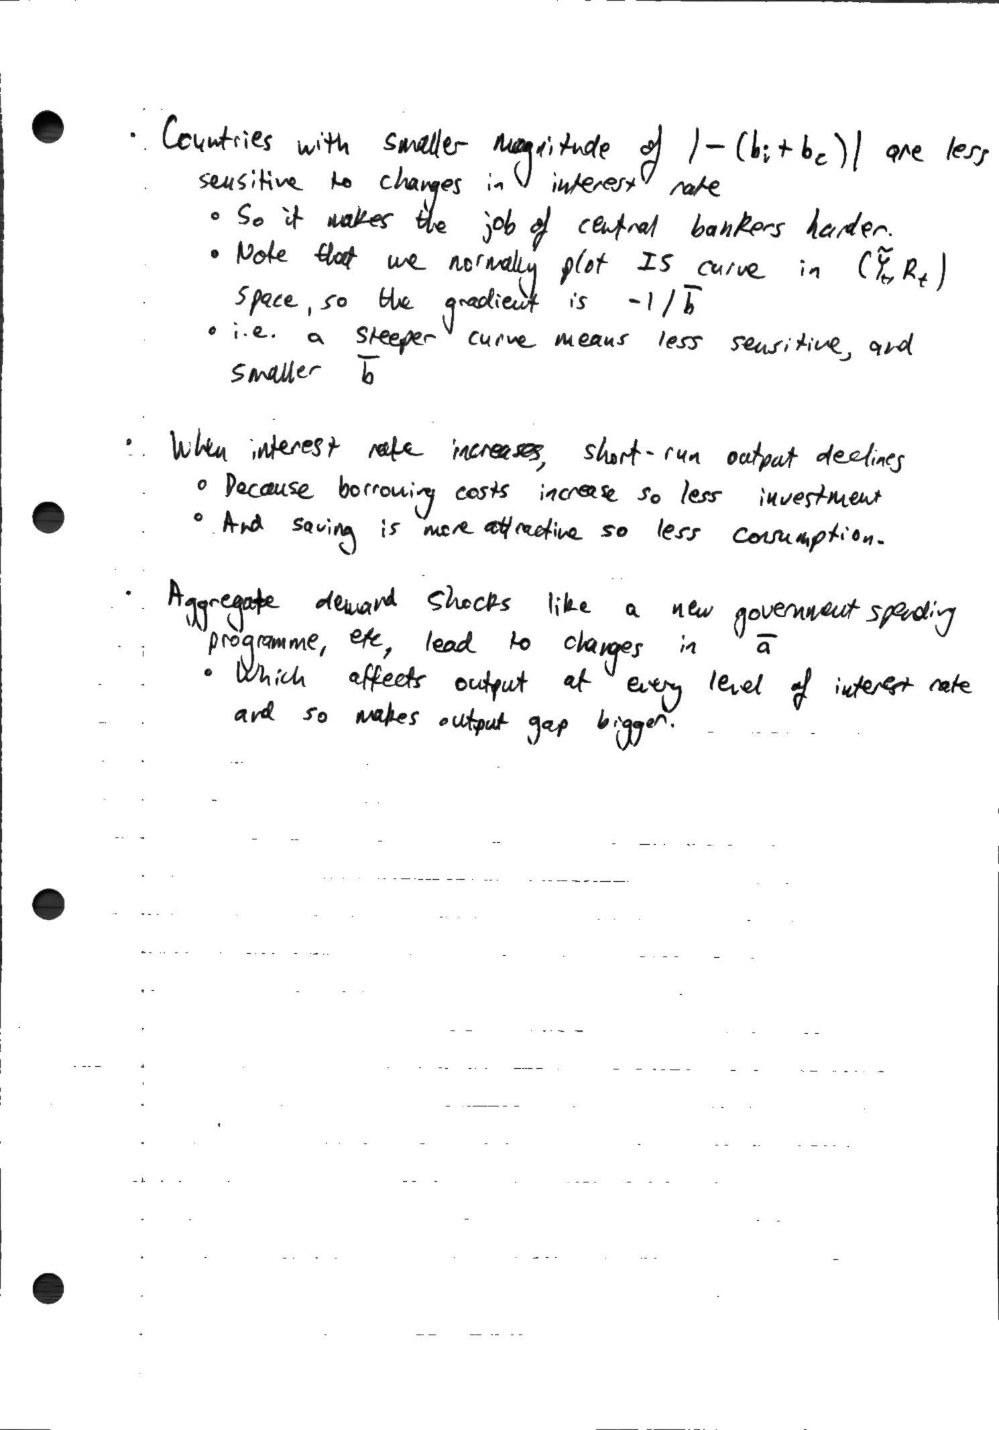 • Countries with smaller magnitude of |-(bi + bc)| are less
sensitive to changes in interest rate
◦ So it makes the job of central bankers harder.
• Note that we normally plot IS curve in (Ỹt, Rt)
space, so the gradient is -1/b̄
◦ i.e. a steeper curve means less sensitive, and
smaller b̄
• When interest rate increases, short-run output declines
◦ Because borrowing costs increase so less investment
◦ And saving is more attractive so less consumption.
• Aggregate demand shocks like a new government spending
programme, etc, lead to changes in ā
• Which affects output at every level of interest rate
and so makes output gap bigger.